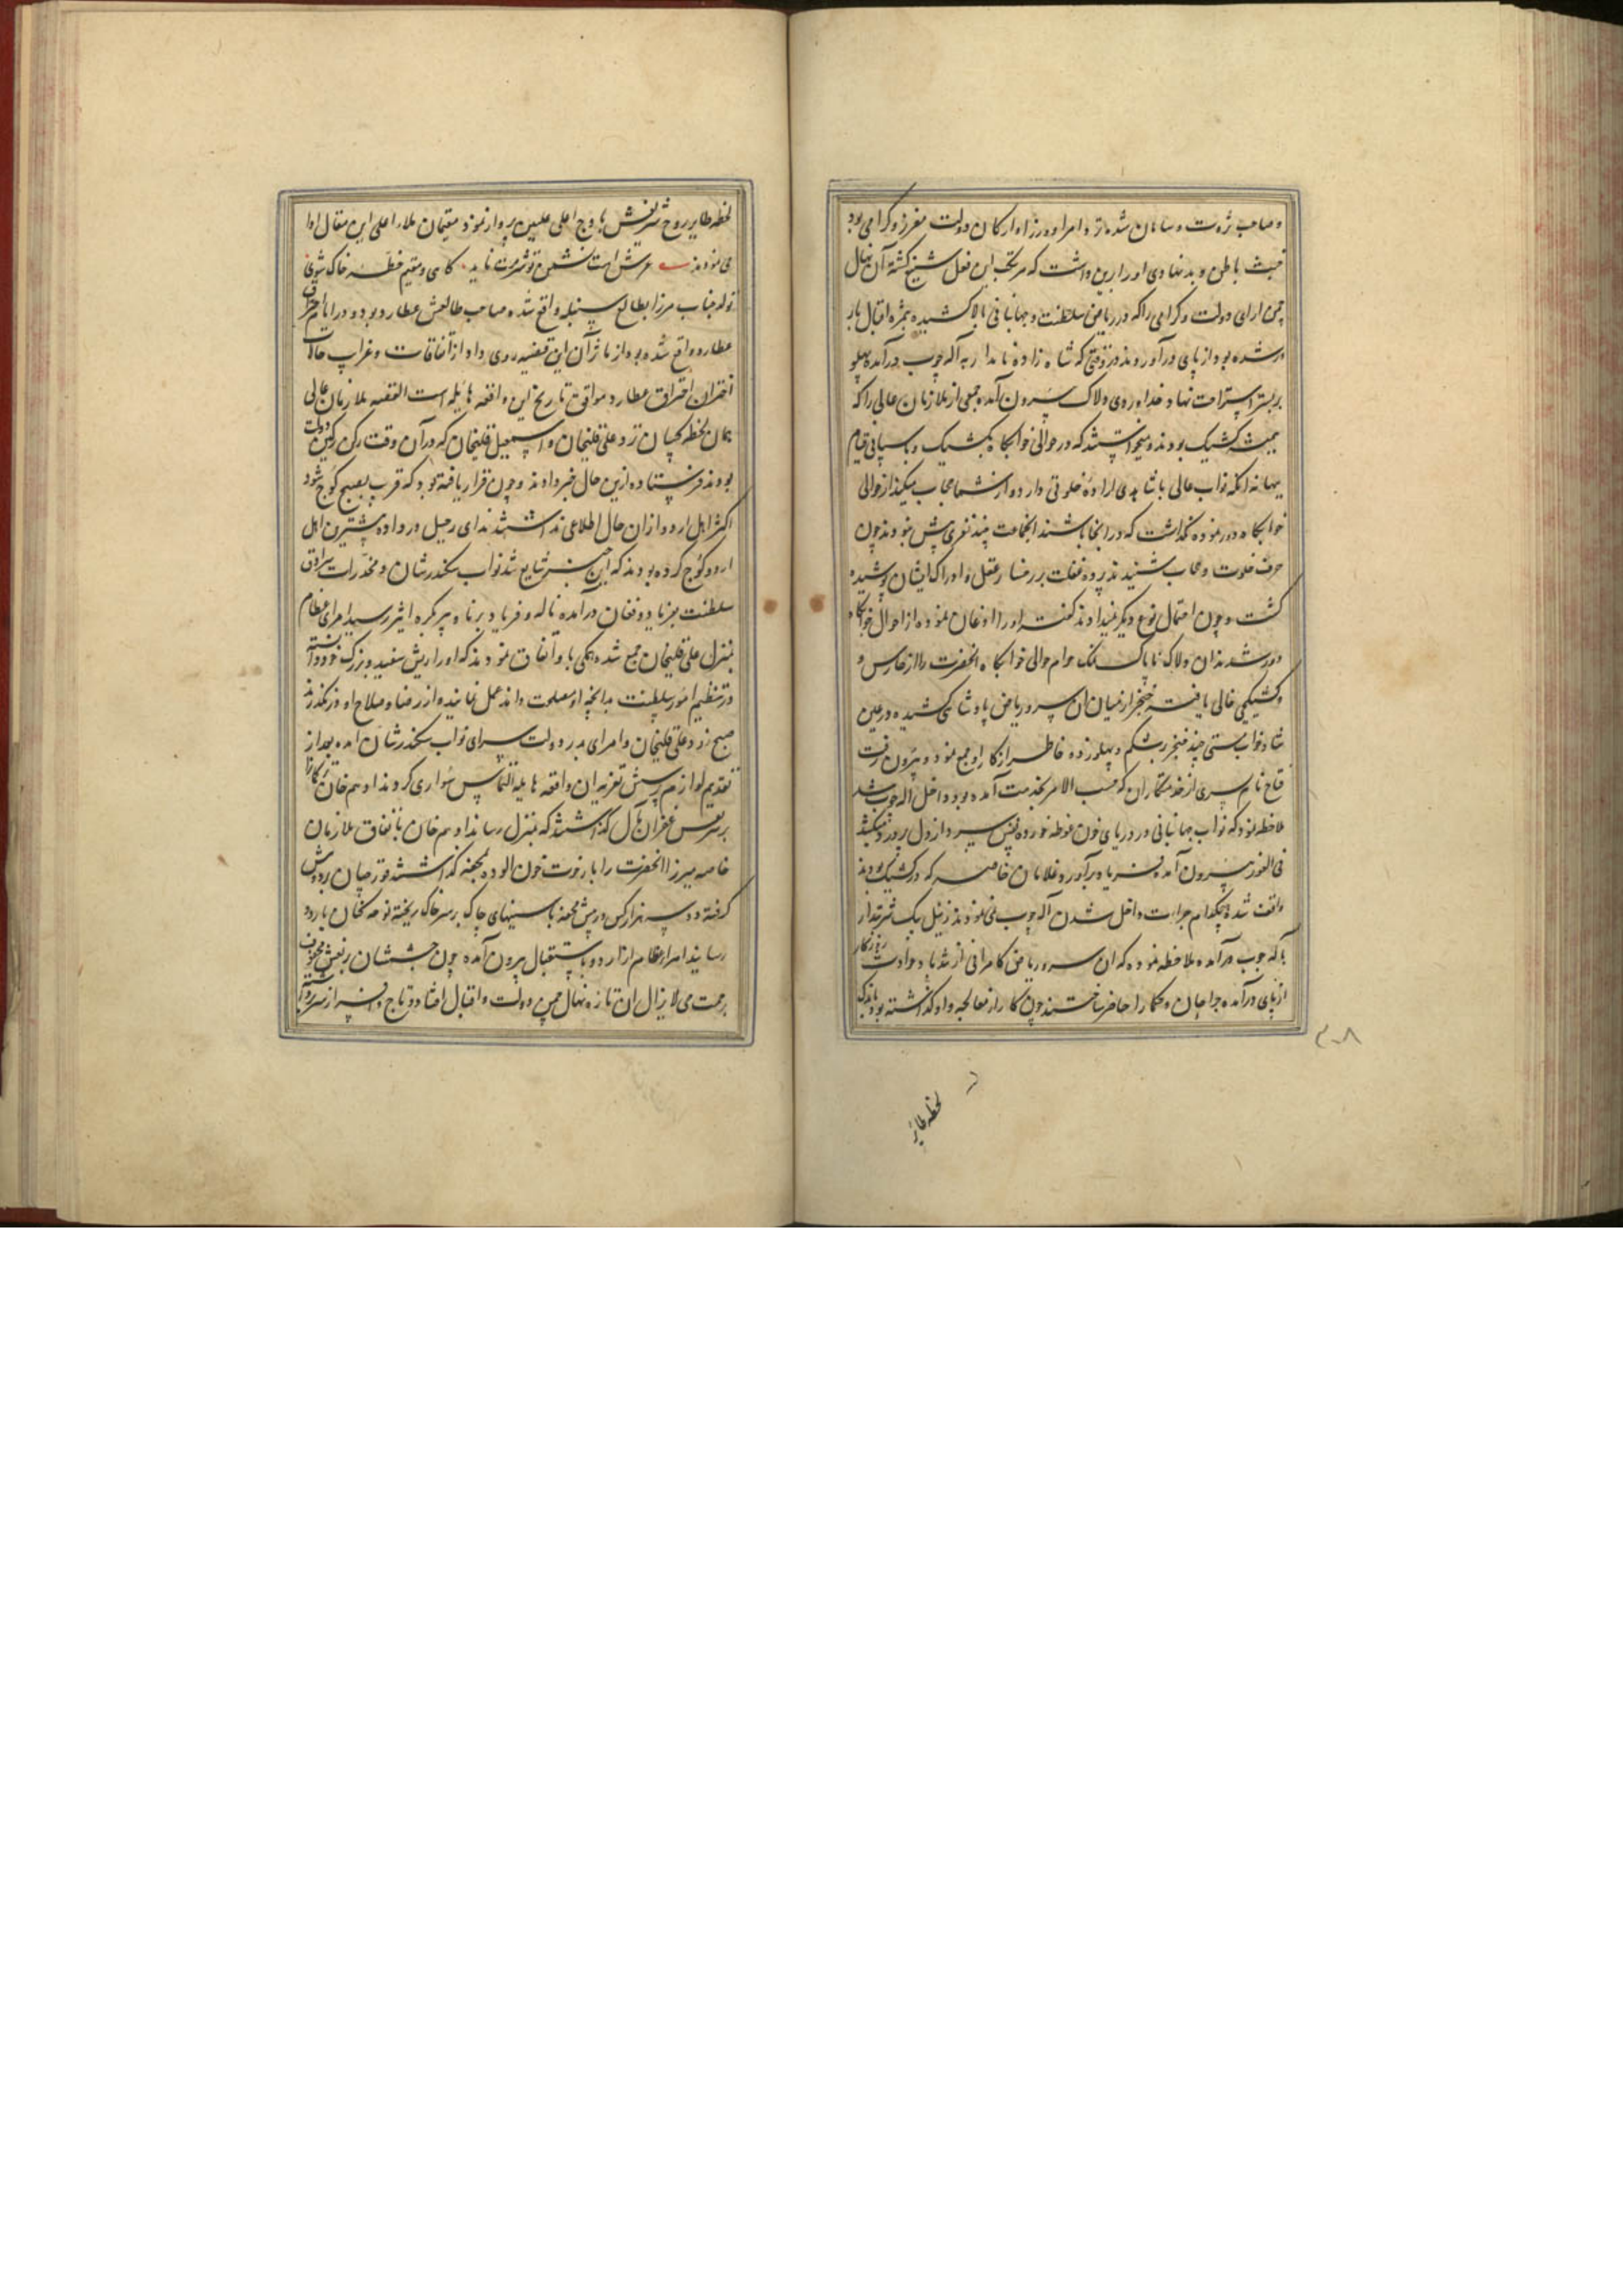 و صاحب ثروت و سامان شده نزد امرا و وزرا و ارکان دولت معزز و کرامی بود
خبث باطن و بد نهادی او را برین داشت که مرتکب این فعل شنیع کشته آن نهال
چمن آرای دولت و کرامی را که در ریاض سلطنت و جهانبانی بالا کشیده بثمره اقبال بار
ور شده بود از پای در آوردند در وقتی که شاه زاده نامدار به آله چوب در آمده پهلو
بر بستر استراحت نهاد خداوردی دلاک بیرون آمده جمعی از ملازمان عالی را که
همیشه کشیک بودند و میخواستند که در حوالی خوابکاه بکشیک و پاسبانی قیام
بهانه آنکه نواب عالی با شاهدی اراده خلوتی دارد و از شما حجاب میکند از حوالی
خوابکاه دور نموده نکذاشت که در آنجا باشند آنجماعت چند نفری پیش نبودند چون
حرف خلوت و حجاب شنیدند پرده غفلت بر رخسار عقل و ادراک ایشان پوشیده
کشت و چون احتمال نوع دیکر نمیدادند کفته او را اذعان نموده از احوال خوابکاه
دور شدند آن دلاک ناپاک نمک حرام حوالی خوابکاه آنحضرت را از حارس و
و کشیکچی خالی یافته خنجر از میان آن سرو ریاض پادشاهی کشیده در عین
شاد خواب مستی چند خنجر بر شکم و پهلو زده خاطر از کار او جمع نمود و بیرون رفت
قباخ نام پسری از خدمتکاران که حسب الامر بخدمت آمده بود داخل آله چوب شد
ملاحظه نمود که نواب جهانبانی در دریای خون غوطه خورده نفس سرد از دل پر درد میکشد
فی الفور بیرون آمده فریاد بر آورد غلامان خاصه که در کشیک بودند
واقف شده هیچکدام جرات داخل شدن آله چوب نمی نمودند زینل بیک شربتدار
بآله چوب در آمده ملاحظه نموده که آن سرو ریاض کامرانی از تندباد حوادث روزکار
از پای در آمده جراحان و حکما را حاضر ساختند چون کار از معالجه و او کذشته بود باندک
لحظه طایر
۳۰۸
لحظه طایر روح شریفش باوج اعلی علیین پرواز نمود مقیمان ملاء اعلی این مقال ادا
می نمودند عرش است نشیمن تو شرمت ناید کایی و مقیم خطه خاک شوی
تولد جناب میرزا بطالع سنبله واقع شده صاحب طالعش عطارد بود و در ایام احتراق
عطارد واقع شده بود از تاثر آن این قضیه روی داد از اتفاقات و غرایب حالات
اختران احتراق عطارد موافق تاریخ این واقعه هایله است القصه ملازمان عالی
همان لحظه کسان نزد علی قلیخان و اسمعیل قلیخان که در آن وقت رکن رکین دولت
بودند فرستاده ازین حال خبر دادند و چون قرار یافته بود که قرب بصبح کوچ شود
اکثر اهل اردو از آن حال اطلاعی نداشتند ندای رحیل در داده پیشترین اهل
اردو کوچ کرده بودند که این خبر شایع شد نواب سکندرشان و مخدرات سرادق
سلطنت بفریاد و فغان در آمده ناله و فریاد برنا و پیر بکره اثیر رسید امرای عظام
بمنزل علی قلیخان جمع شده همکی باو اتفاق نمودند که او را ریش سفید و بزرک خود دانسته
در تنظیم امور سلطنت بدانچه او مصلحت داند عمل نمایند و از رضا و صلاح او در نکذرند
صبح زود علی قلیخان و امرای بدر دولت سرای نواب سکندرشان آمده بعد از
تقدیم لوازم پرسش تعزیه آن واقعه هایله التماس سواری کردند ادهم خان ترکمان را
بر سر نعش غفران مآل کذاشتند که بمنزل رساند ادهم خان باتفاق ملازمان
خاصه میرزا آنحضرت را با رخوت خون آلوده بمحفه کذاشتند قورچیان بر دوش
کرفته دو سه هزار کس در پیش محفه با سینهای چاک بر سر خاک ریخته نوحه کنان باردو
رسانیدند امراء عظام از اردو باستقبال بیرون آمده چون چشمشان بر نعش محفوف
برحمت لا یزال آن تازه نهال چمن دولت و اقبال افتاد و تاج و افسر از سر برداشته